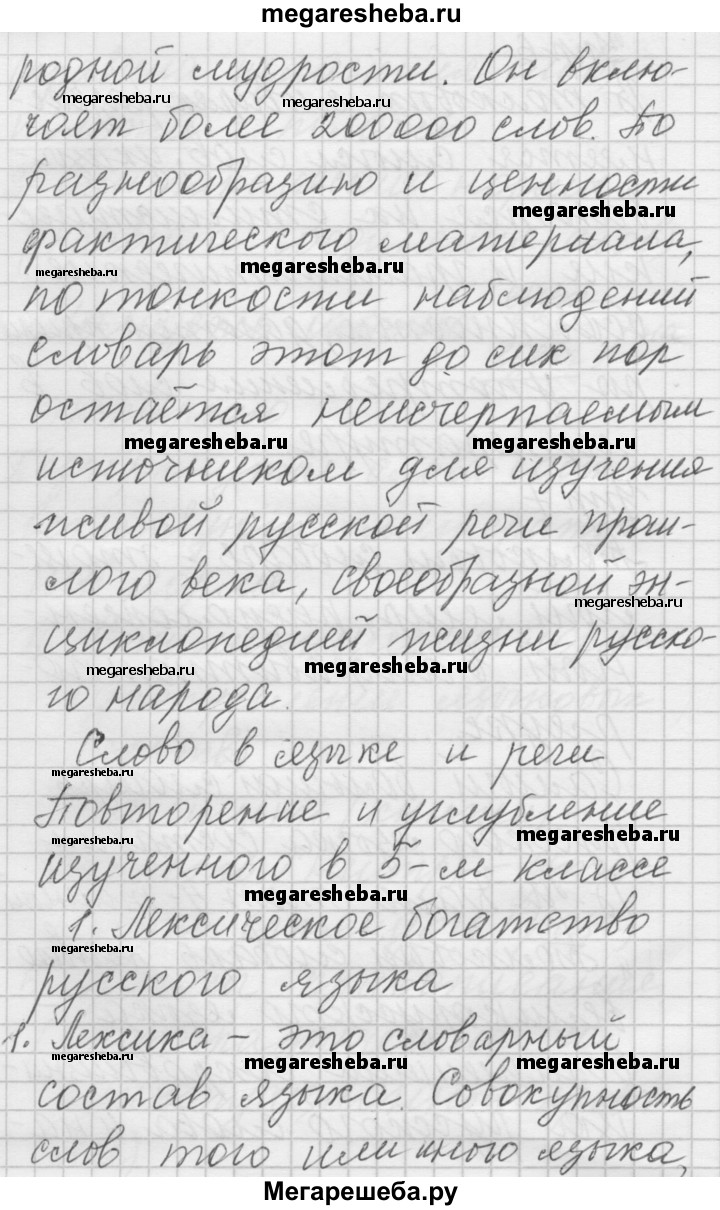 megaresheba.ru
родной мудрости. Он вклю-
megaresheba.ru megaresheba.ru
чает более 200000 слов. По
разнообразию и ценности
megaresheba.ru
фактического материала,
megaresheba.ru megaresheba.ru
по тонкости наблюдений
словарь этот до сих пор
остаётся неисчерпаемым
megaresheba.ru megaresheba.ru
источником для изучения
живой русской речи прош-
лого века, своеобразной эн-
megaresheba.ru
циклопедией жизни русско-
megaresheba.ru megaresheba.ru
го народа.
Слово в языке и речи
megaresheba.ru
Повторение и углубление
megaresheba.ru megaresheba.ru
изученного в 5-м классе
megaresheba.ru
1. Лексическое богатство
megaresheba.ru
русского языка
1. Лексика – это словарный
megaresheba.ru megaresheba.ru megaresheba.ru
состав языка. Совокупность
слов того или иного языка,
Мегарешеба.ру